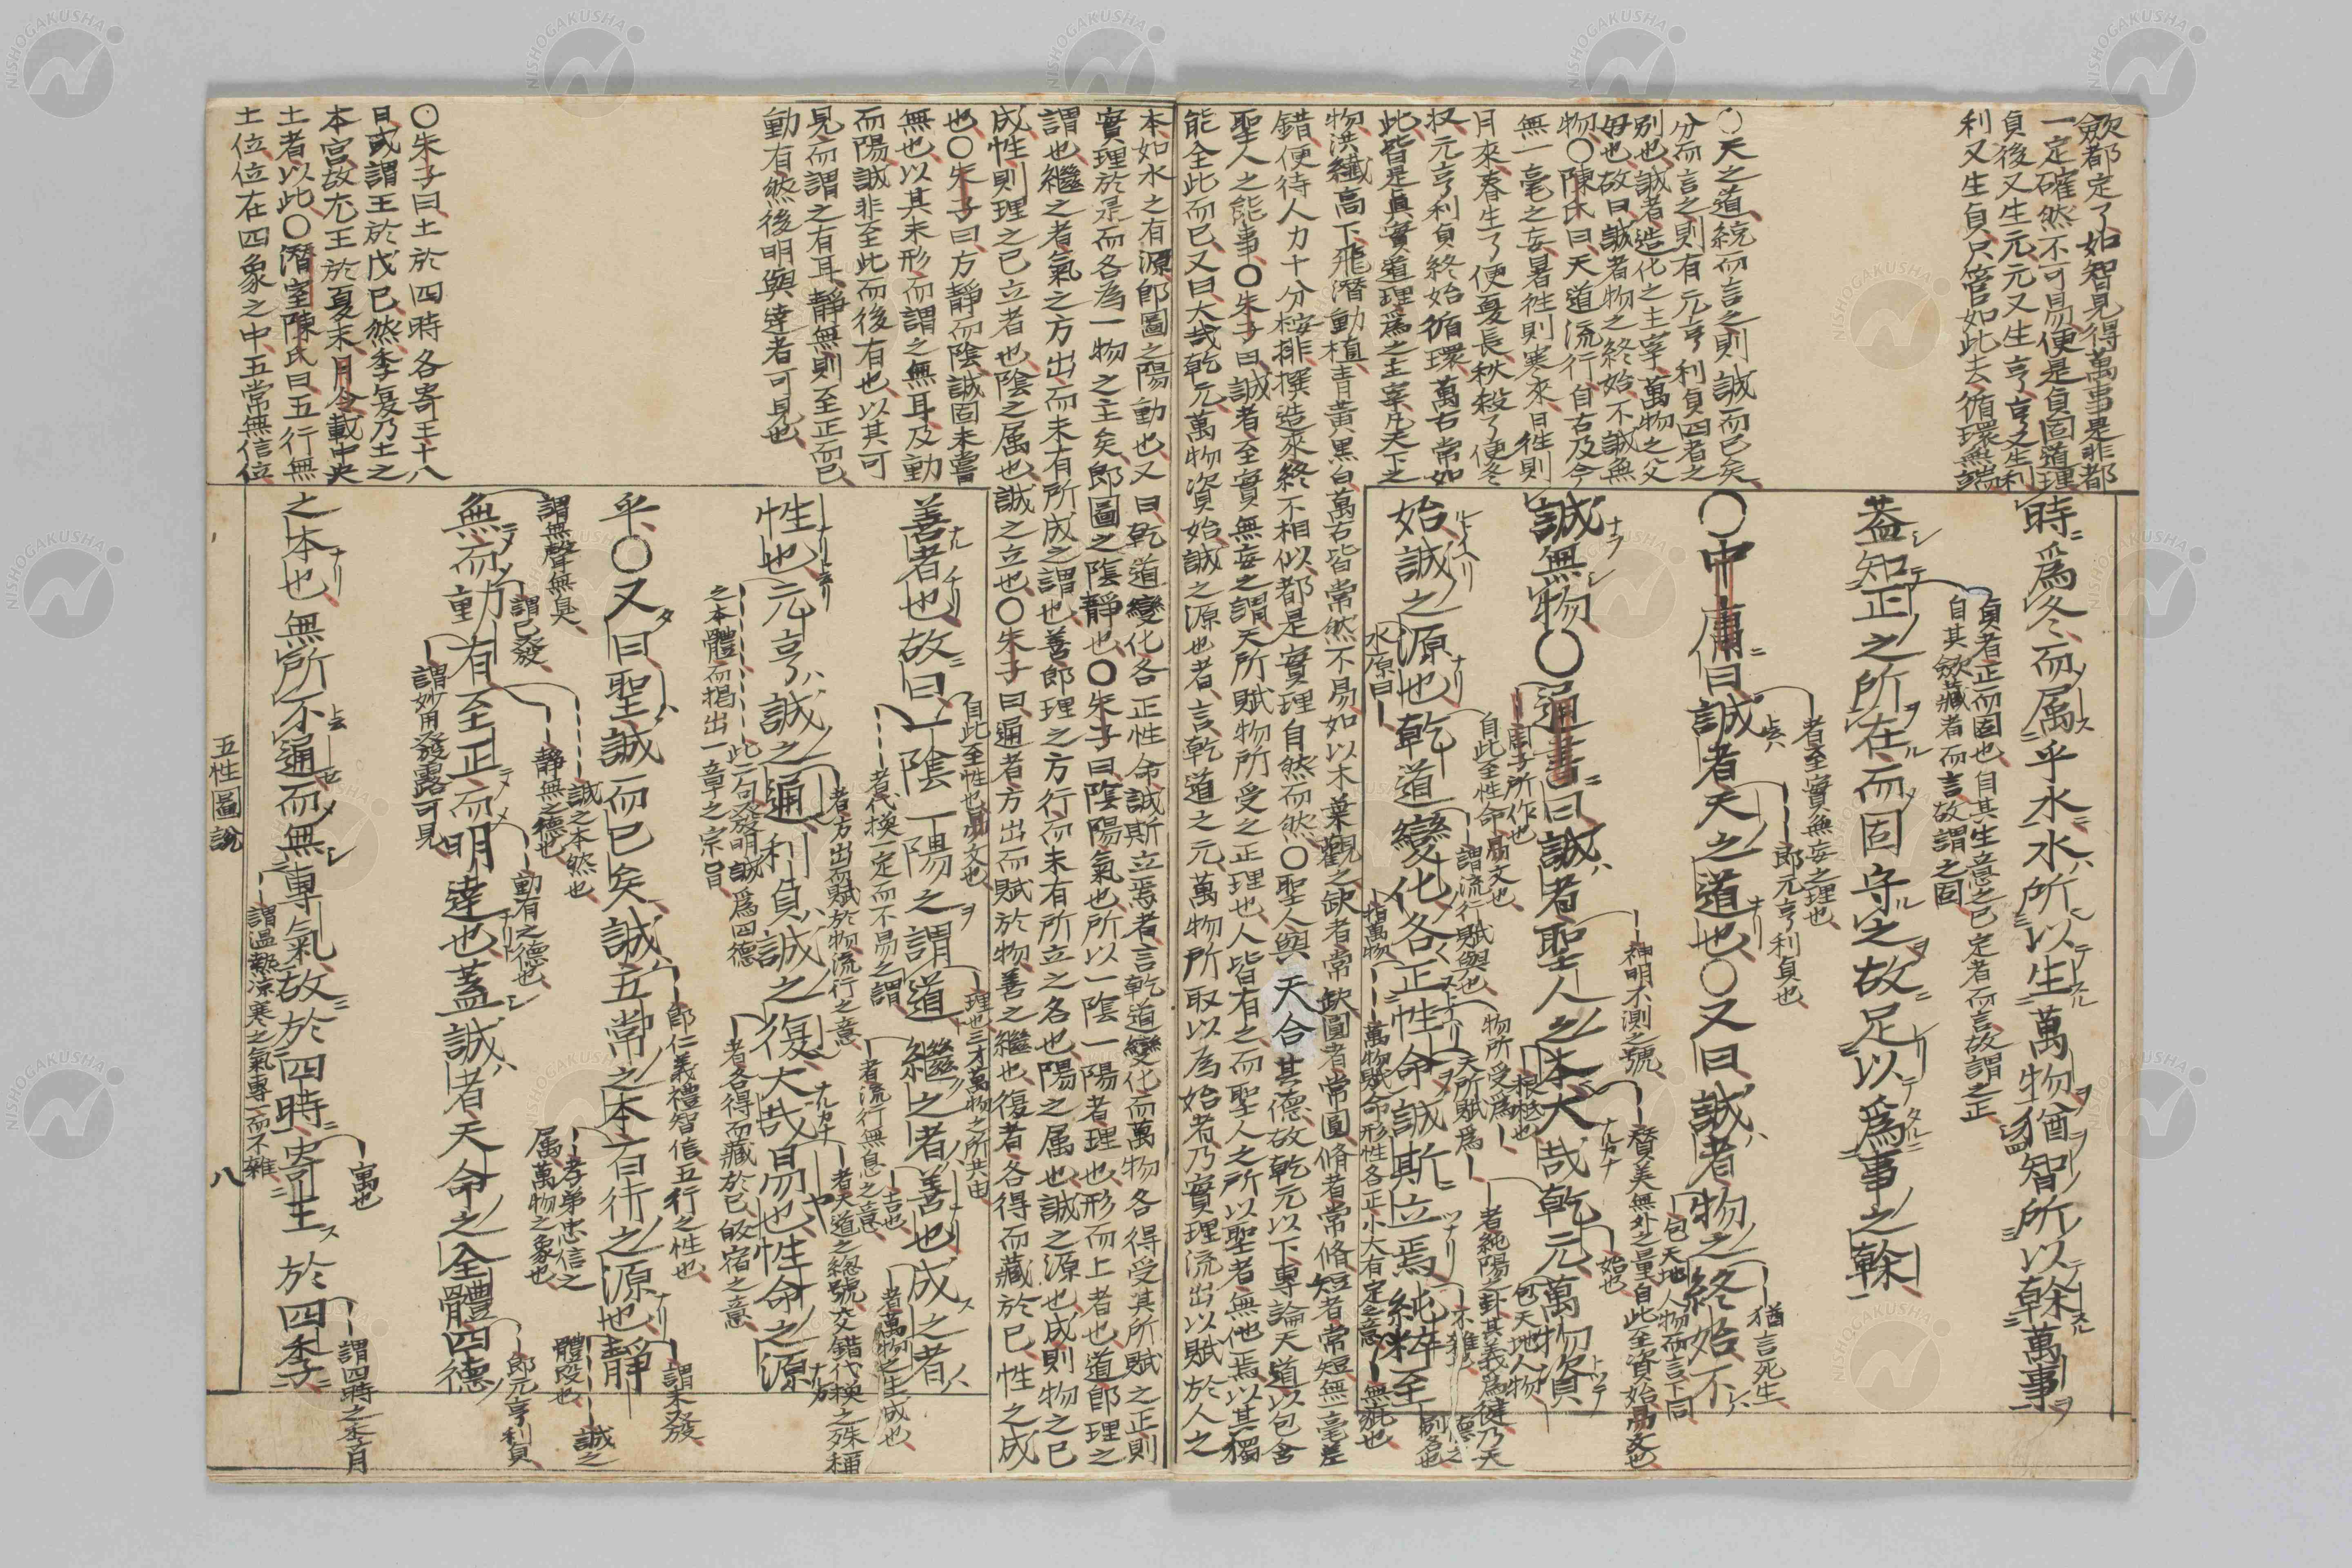 歛都定了如智見得萬事是非都
一定確然不可易便是貞固道理
貞後又生元元又生亨亨又生利
利又生貞只管如此去循環無端
時爲冬而属乎水水所以生萬物猶智所以幹萬事
貞者正而固也自其生意之已定者而言故謂之正
自其歛藏者而言故謂之固
蓋知正之所在而固守之故足以爲事之幹
〇天之道統而言之則誠而已矣
分而言之則有元亨利貞四者之
別也誠者造化之主宰萬物之父
母也故曰誠者物之終始不誠無
物〇陳氏曰天道流行自古及今
無一毫之妄暑徃則寒來日徃則
月來春生了便夏長秋殺了便冬
元亨利貞終始循環萬古常如
此皆是眞實道理爲之主宰凡天下之
〇中庸曰誠者天之道也〇又曰誠者物之終始不
者至實無妄之理也
即元亨利貞也
猶言死生
包天地人物而言下同
誠無物〇通書曰誠者聖人之本大哉乾元萬物資
周子所作也
神明不測之號
根柢也
賛美無外之量自此至資始易文也
始也
包天地人物
始誠之源也乾道變化各正性命誠斯立焉純粹至
水原曰
自此至性命易文也
謂流行賦與也
指萬物
物所受爲
天所賦爲
者純陽之卦其義爲健乃天
德之
別名也
萬物賦命形性各正小大有定之意
不雜也
無疵也
物洪纎高下飛潛動植青黃黒白萬古皆常然不易如以木葉觀之缺者常缺圓者常圓脩者常脩短者常短無一毫差
錯便待人力十分桉排撰造來終不相似都是實理自然而然〇聖人與天合其德故乾元以下專論天道以包含
聖人之能事〇朱子曰誠者至實無妄之謂天所賦物所受之正理也人皆有之而聖人之所以聖者無他焉以其獨
能全此而已又曰大哉乾元萬物資始誠之源也者言乾道之元萬物所取以為始者乃實理流出以賦於人之
本如水之有源即圖之陽動也又曰乾道變化各正性命誠斯立焉者言乾道變化而萬物各得受其所賦之正則
實理於是而各為一物之主矣即圖之隂靜也〇朱子曰隂陽氣也所以一隂一陽者理也形而上者也道即理之
謂也繼之者氣之方出而未有所成之謂也善即理之方行而未有所立之名也陽之属也誠之源也成則物之已
成性則理之已立者也隂之属也誠之立也〇朱子曰通者方出而賦於物善之繼也復者各得而藏於已性之成
也〇朱子曰方靜而隂誠固未嘗
無也以其未形而謂之無耳及動
而陽誠非至此而後有也以其可
見而謂之有耳靜無則至正而已
動有然後明與達者可見也
善者也故曰一隂一陽之謂道繼之者善也成之者
自此至性也易文也
者代換一定而不易之謂
理也三才萬物之所共由
者流行無息之意
吉也
者萬物之生成也
性也元亨誠之通利貞誠之復大哉易也性命之源
者方出而賦於物流行之意
者各得而藏於已皈宿之意
者天道之總號交錯代換之殊種
此一句發明誠爲四德
之本體而掲出一章之宗旨
乎〇又曰聖誠而已矣誠五常之本百行之源也靜
即仁義禮智信五行之性也
孝弟忠信之
属萬物之象也
謂未發
誠之
體段也
無而動有至正而明達也蓋誠者天命之全體四德
謂無聲無臭
謂已發
謂妙用發露可見
誠之本然也
靜無之德也
動有之德也
即元亨利貞
〇朱子曰土於四時各寄王十八
日或謂王於戊已然季夏乃土之
本宮故尤王於夏末月令載中央
土者以此〇潛室陳氏曰五行無
土位位在四象之中五常無信位
之本也無所不通而無專氣故於四時寄王於四季
謂温熱凉寒之氣專一而不雜
寓也
謂四時之季月
五性圖說
八